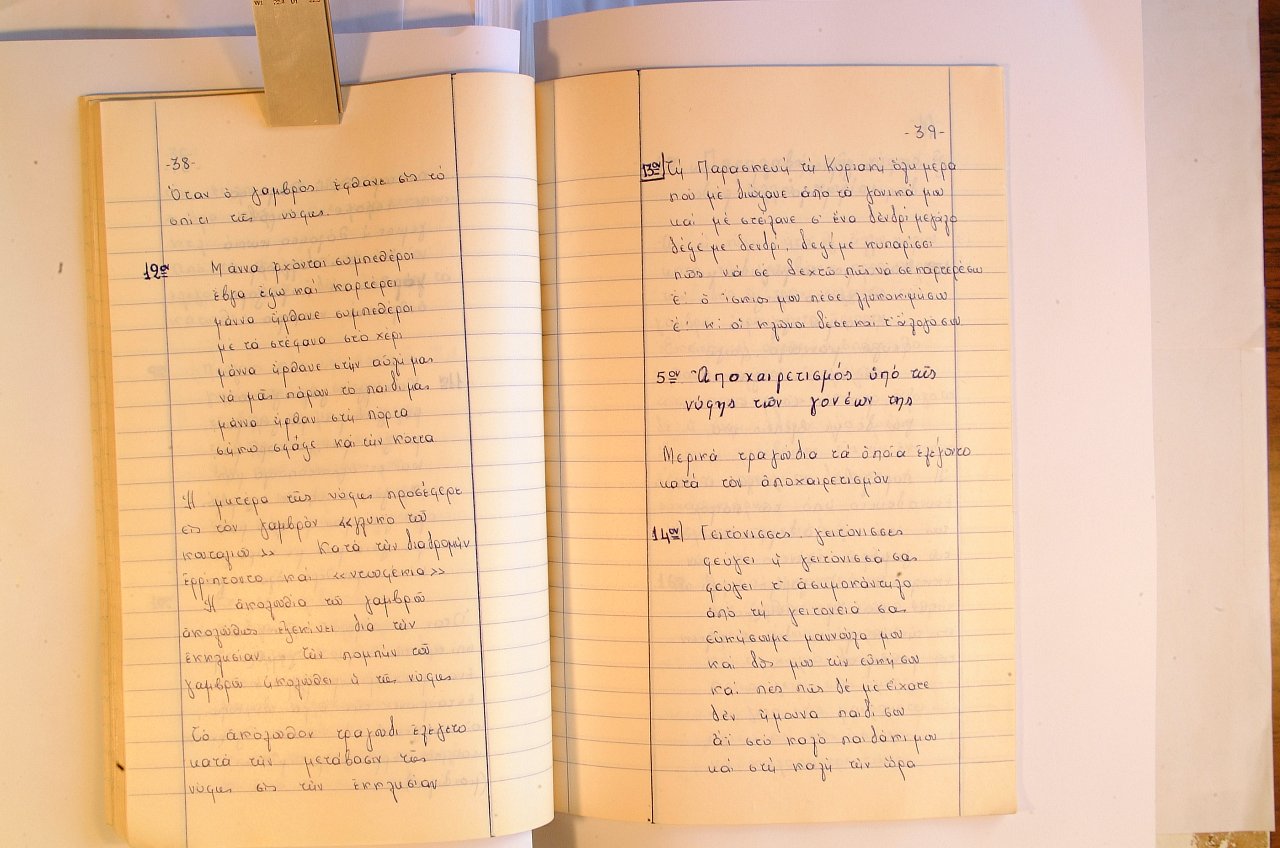 -38-
Ὅταν ὁ γαμβρός ἔφθανε εἰς τό
σπίτι τῆς νύφης.
12ον Μάννα ἔρχονται συμπεθέροι
ἔβγα ἔξω καί καρτέρει
μάννα ἤρθανε συμπεθέροι
με τά στέφανα στο χέρι
μάννα ἤρθανε στήν αὐλή μας
νά μᾶς πάρουν το παιδί μας
μάννα ἤρθαν στή πόρτα
σήκω σφάξε καί τήν κόττα
Ἡ μητέρα τῆς νύφης προσέφερε
εἰς τόν γαμβρόν «γλυκο τοῦ
κουταλιοῦ». Κατά τήν διαδρομήν
ἐρρίπτοντο καί «ντουφέκια»
Ἡ ἀκολουθία τοῦ γαμβροῦ
ἀκολούθως ξεκίνει διά τήν
ἐκκλησίαν τήν πομπήν τοῦ
γαμβροῦ ἠκολούθει ἡ τῆς νύφης
Τό ἀκόλουθον τραγούδι ἐλέγετο
κατά τήν μετάβασιν τῆς
νύφης εἰς τήν ἐκκλησίαν
-39-
13ον Τή Παρασκευή τή Κυριακή ὅλη μέρα
πού μέ διώξανε ἀπό τά γονικά μου
καί μέ στείλανε σ' ἕνα δένδρί μεγάλο
δέξε με δενδρί, δέξε με κυπαρίσσι
πῶς νά σέ δεχτῶ πῶς νά σε καρτερέσω
ἔ! ὁ ἴσκιος μου πέσε γλυκοκιμήσου
ἔ! κ! οἱ κλῶνοι δέσε καί τ' ἄλογό σου
5ον Ἀποχαιρετισμός ὑπό τῆς
νύφης τῶν γονέων της
Μερικά τραγούδια τά ὁποῖα ἐλέγοντο
κατά τον ἀποχαιρετισμόν
14ον Γειτόνισσες γειτόνισσες
φεύγει ἡ γειτόνισσά σας
φεύγει τ' ἀσημοκάντηλο
ἀπό τή γειτονειά σας
εὐκήσουμε μαννούλα μου
καί δός μου τήν εὐκή σου
καί πές πῶς δέ μέ εἴχατε
δέν ἤμουνα παιδί σου
ἄϊ στό καλό παιδάκι μου
καί στή καλή τήν ὥρα